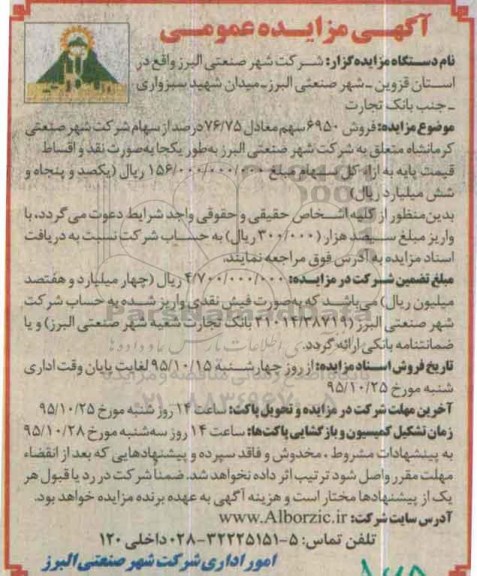 آگهی مزایده عمومی
نام دستگاه مزایده گزار: شرکت شهر صنعتی البرز واقع در
استان قزوین - شهر صنعتی البرز - میدان شهید سبزواری
- جنب بانک تجارت
موضوع مزایده: فروش ۶۹۵۰ سهم معادل ۷۶/۷۵ درصد از سهام شرکت شهر صنعتی
کرمانشاه متعلق به شرکت شهر صنعتی البرز به‌طور یکجا به‌صورت نقد و اقساط
قیمت پایه به ازاء کل سهام مبلغ ۱۵۶/۰۰۰/۰۰۰/۰۰۰ ریال (یکصد و پنجاه و
شش میلیارد ریال)
بدین منظور از کلیه اشخاص حقیقی و حقوقی واجد شرایط دعوت می گردد، با
واریز مبلغ سیصد هزار (۳۰۰/۰۰۰ ریال) به حساب شرکت نسبت به دریافت
اسناد مزایده به آدرس فوق مراجعه نمایند.
مبلغ تضمین شرکت در مزایده: ۴/۷۰۰/۰۰۰/۰۰۰ ریال (چهار میلیارد و هفتصد
میلیون ریال) می‌باشد که به‌صورت فیش نقدی واریز شده به حساب شرکت
شهر صنعتی البرز (۲۱۰۱۴/۳۸۷۱۹ بانک تجارت شعبه شهر صنعتی البرز) و یا
ضمانتنامه بانکی ارائه گردد.
تاریخ فروش اسناد مزایده: از روز چهارشنبه ۹۵/۱۰/۱۵ لغایت پایان وقت اداری
شنبه مورخ ۹۵/۱۰/۲۵
آخرین مهلت شرکت در مزایده و تحویل پاکت: ساعت ۱۴ روز شنبه مورخ ۹۵/۱۰/۲۵
زمان تشکیل کمیسیون و بازگشایی پاکت‌ها: ساعت ۱۴ روز سه‌شنبه مورخ ۹۵/۱۰/۲۸
به پیشنهادات مشروط، مخدوش و فاقد سپرده و پیشنهادهایی که بعد از انقضاء
مهلت مقرر واصل شود ترتیب اثر داده نخواهد شد. ضمناً شرکت در رد یا قبول هر
یک از پیشنهادها مختار است و هزینه آگهی به عهده برنده مزایده خواهد بود.
آدرس سایت شرکت: www.Alborzic.ir
تلفن تماس: ۵-۳۲۲۲۵۱۵۱-۰۲۸ داخلی ۱۲۰
امور اداری شرکت شهر صنعتی البرز